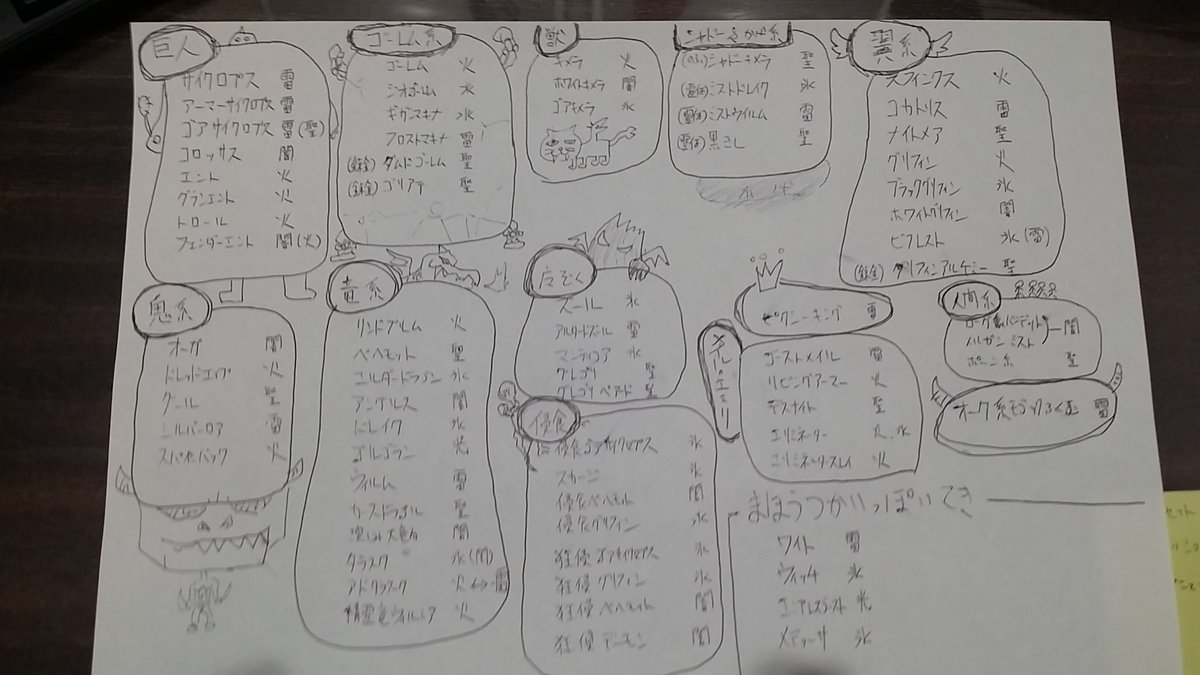 巨人
サイクロプス 雷
アーマーサイクロプス 雷
ゴアサイクロプス 雷(聖)
コロッサス 闇
エント 火
グランエント 火
トロール 火
フェンダーエント 闇(火)
ゴーレム系
ゴーレム 火
ジオゴーレム 氷
ギガンマキナ 氷
フロストマキナ 雷
(錬金)ダムドゴーレム 聖
(錬金)ゴリアテ 聖
獣
キメラ 火
ホワイトキメラ 闇
ゴアキメラ 氷
シャドー&かげ系
シャドーキメラ 聖
(雷体)ミストドレイク 氷
(雷体)ミストウィルム 雷
聖
かげ
翼系
スフィンクス 火
コカトリス 雷
ナイトメア 聖
グリフィン 火
ブラックグリフィン 氷
ホワイトグリフィン 闇
ビフレスト 氷(雷)
(錬金)グリフィンアルケミー 聖
鬼系
オーガ 闇
ドレッドエイプ 火
グール 聖
シルバーロア 雷
スパイクバック 火
竜系
リンドブルム 火
ベヘモット 聖
エルダードラゴン 氷
アンゲルス 闇
ドレイク 氷
ゴルゴラン 光
ウィルム 雷
カースドラゴン 聖
闇
タラスク 氷(闇)
アドタラスク 火⇔雷
精霊竜ウィルミア 火
ズール 氷
アルケードズール 雷
マンティコア 氷
グレゴリ 聖
聖
侵食
侵食ゴアサイクロプス 氷
スカージ 氷
侵食ベヘモット 闇
侵食グリフィン 氷
狂侵ゴアサイクロプス 氷
狂侵グリフィン 氷
狂侵ベヘモット 闇
狂侵デーモン 闇
ピクシーキング 雷
ゴーストメイル 雷
リビングアーマー 火
デスナイト 聖
エリミネーター 火、氷
火
人間系
闇
モルガン ミスト
聖
雷
まほうつかいっぽいてき
ワイト 雷
ウィッチ 氷
光
メデューサ 氷